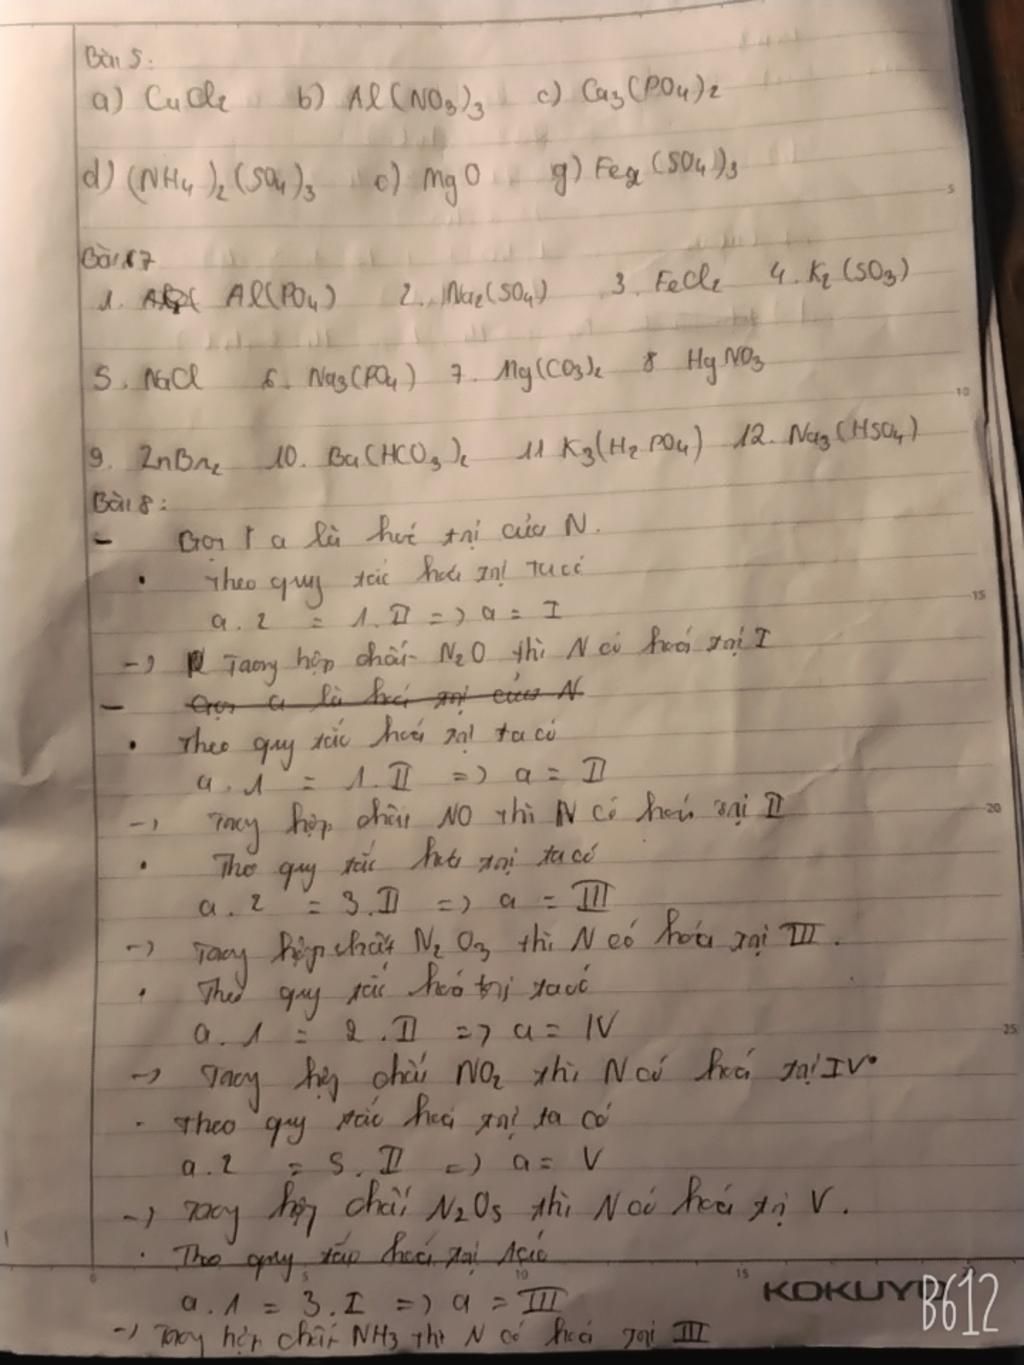 Bài 5:
a) CuCl2 b) Al(NO3)3 c) Ca3(PO4)2
d) (NH4)2(SO4)3 e) MgO g) Fe2(SO4)3
Bài 7
1. Al(PO4) 2. Na2(SO4) 3. FeCl2 4. K2(SO3)
5. NaCl 6. Na3(PO4) 7. Mg(CO3)2 8 HgNO3
9. ZnBr2 10. Ba(HCO3)2 11 K3(H2PO4) 12. Na3(HSO4)
Bài 8:
- Gọi a là hoá trị của N.
· Theo quy tắc hoá trị ta có
a.2 = 1.II => a = I
-> Trong hợp chất N2O thì N có hoá trị I
- Gọi a là hoá trị của N
· Theo quy tắc hoá trị ta có
a.1 = 1.II => a = II
-> Trong hợp chất NO thì N có hoá trị II
· Theo quy tắc hoá trị ta có
a.2 = 3.II => a = III
-> Trong hợp chất N2O3 thì N có hoá trị III.
· Theo quy tắc hoá trị ta có
a.1 = 2.II => a = IV
-> Trong hợp chất NO2 thì N có hoá trị IV
· Theo quy tắc hoá trị ta có
a.2 = 5.II => a = V
-> Trong hợp chất N2O5 thì N có hoá trị V.
· Theo quy tắc hoá trị ta có
a.1 = 3.I => a = III
-> Trong hợp chất NH3 thì N có hoá trị III
KOKUYO
B612